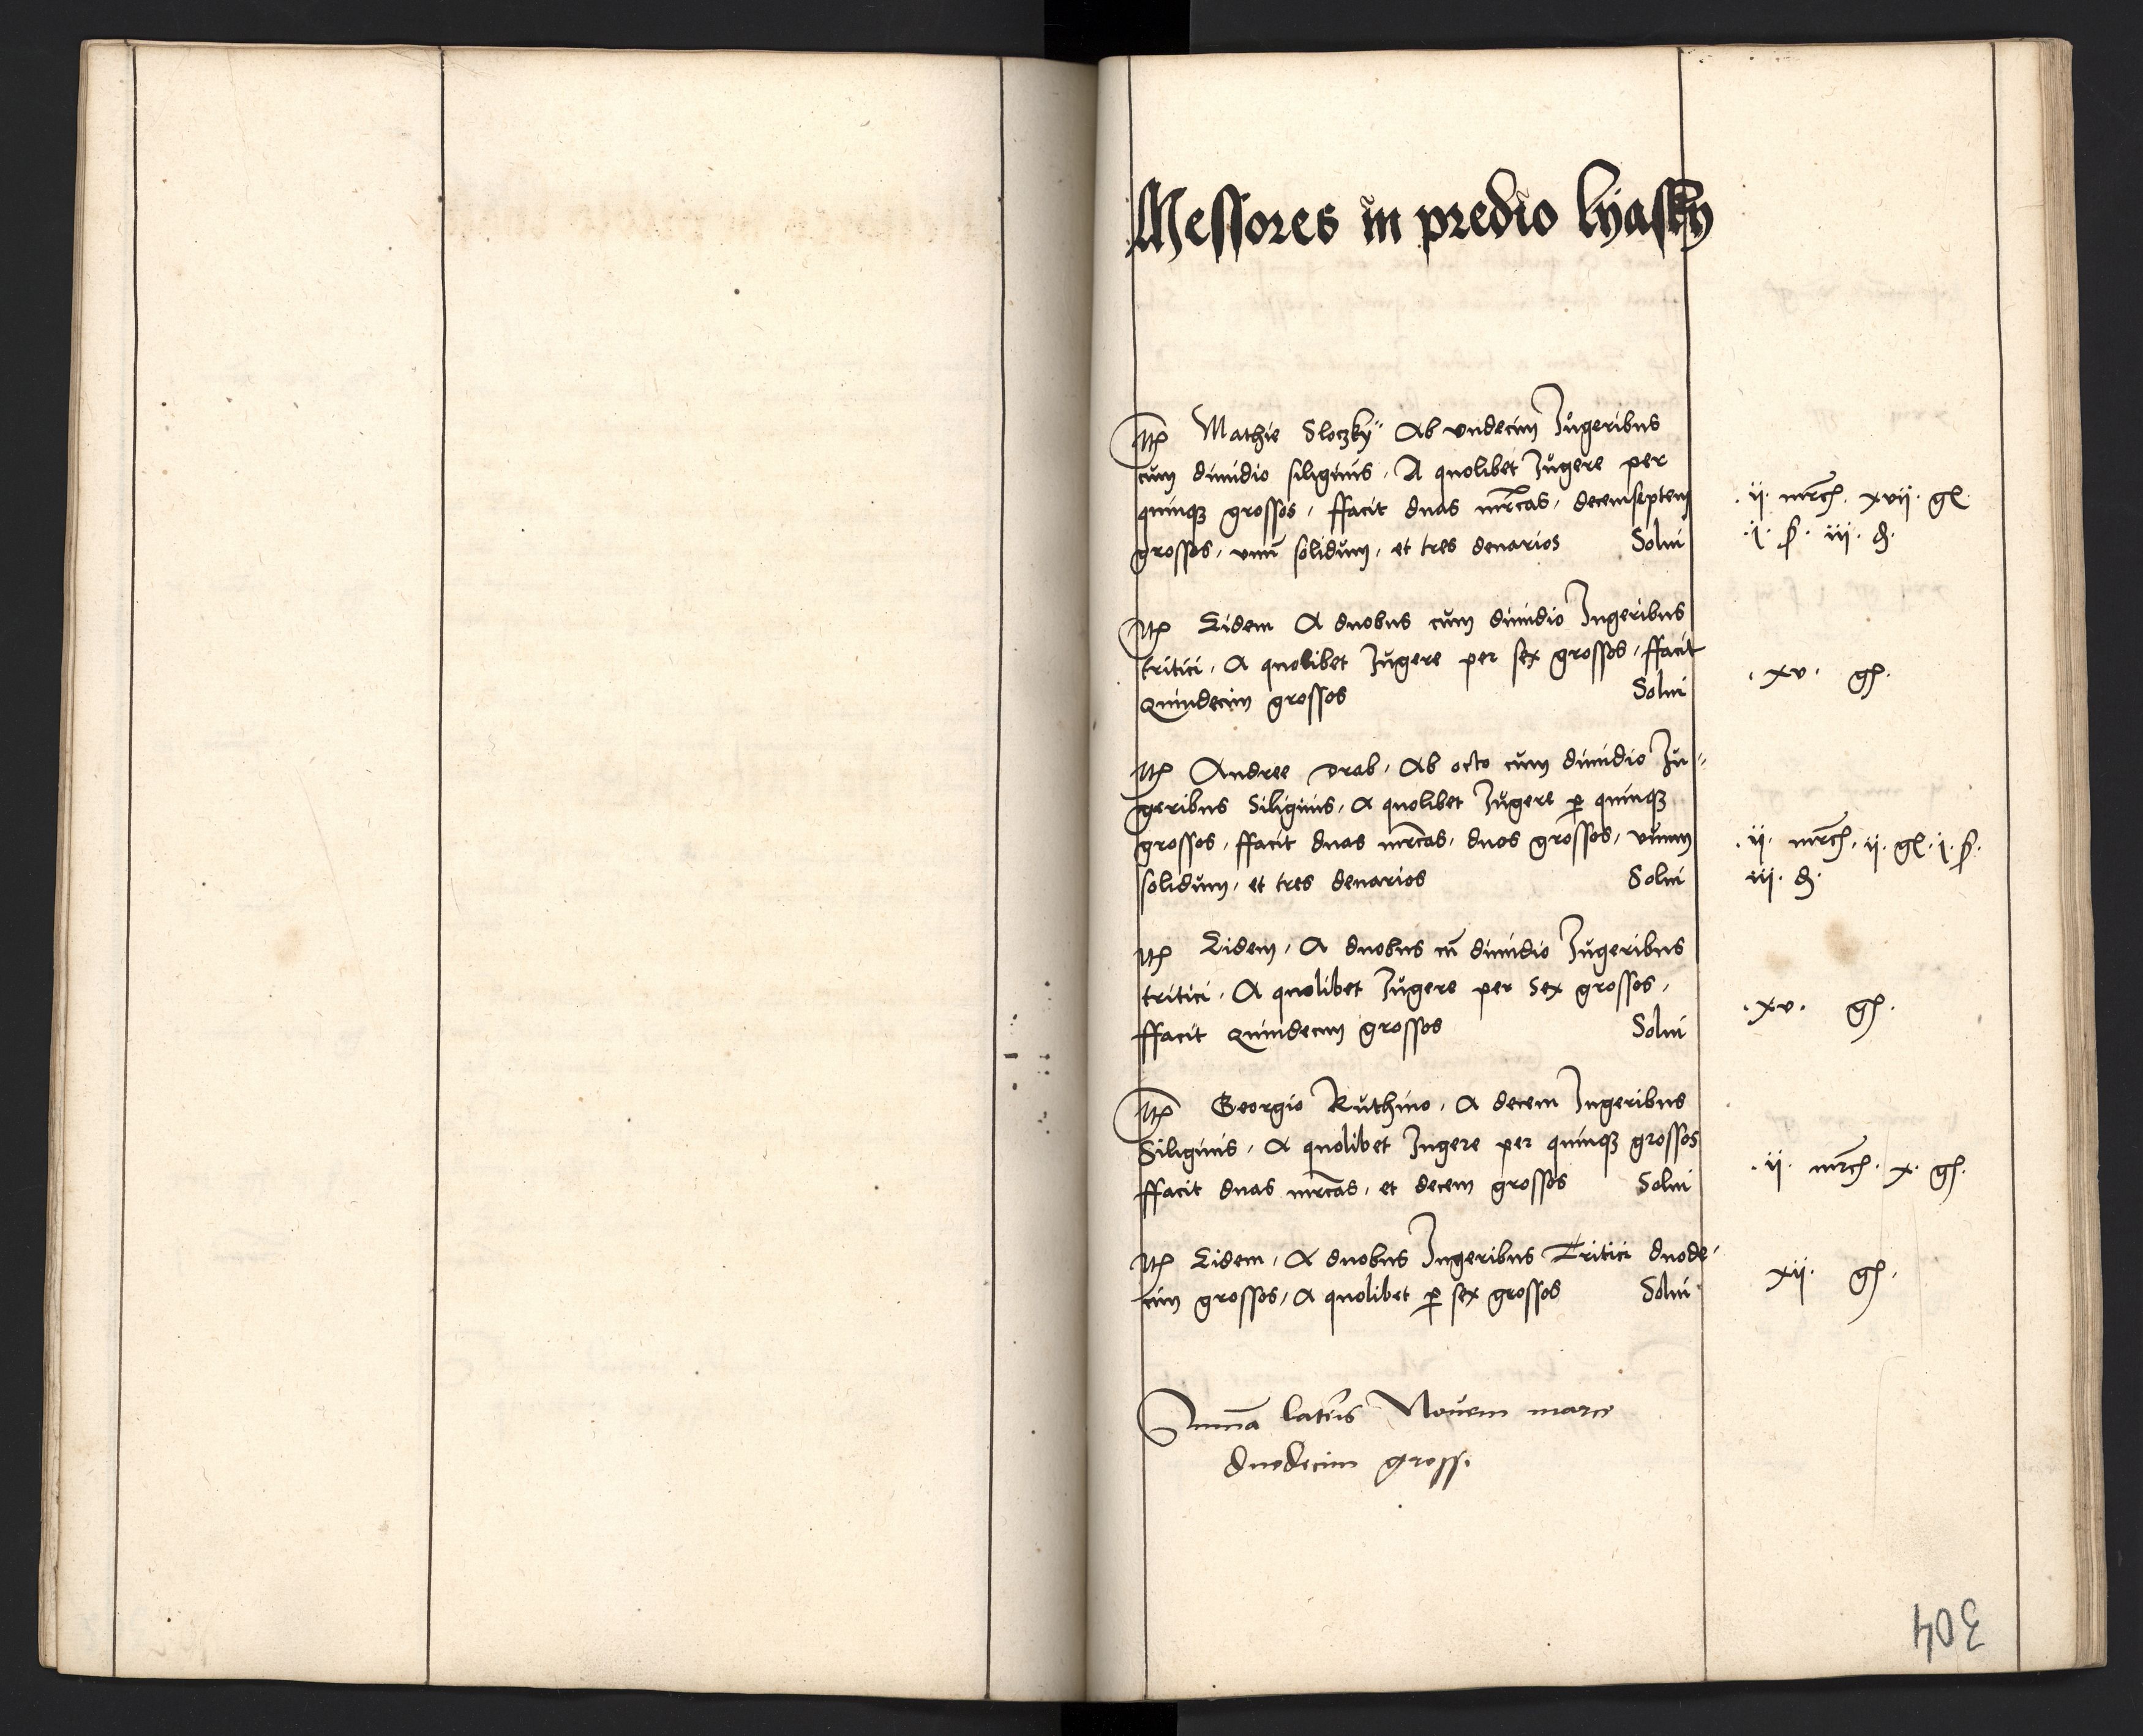 Messores in predio lyasky
Itē Mathie Sloczky Ab vndecim Jugeribus
cum dimidio siliginis, A quolibet Jugere per
quinqȝ grossos, ffacit duas mrcas, decemseptem
grossos, vnū solidum, et tres denarios Solui
.ij. mrc. xvij. gs.
.i. s. iij. d.
Itē Eidem A duobus cum dimidio Jugeribus
tritici, A quolibet Jugere per sex grossos, ffacit
Quindecim grossos Solui
.xv. gs.
Itē Andree drab, Ab octo cum dimidio Ju-
geribus Siliginis, A quolibet Jugere p quinqȝ
grossos, ffacit duas mrcas, duos grossos, vnum
solidum, et tres denarios Solui
.ij. mrc. ij. gs. i. s.
iij. d.
Itē Eidem, A duobus cū dimidio Jugeribus
tritici, A quolibet Jugere per Sex grossos,
ffacit Quindecim grossos Solui
.xv. gs.
Itē Georgio Ruthino, A decem Jugeribus
Siliginis, A quolibet Jugere per quinqȝ grossos
ffacit duas mrcas, et decem grossos Solui
.ij. mrc. x. gs.
Itē Eidem, A duobus Jugeribus Tritici duode-
cim grossos, A quolibet p sex grossos Solui
xij. gs.
Summa lateris Nouem marce
duodecim grossi
304